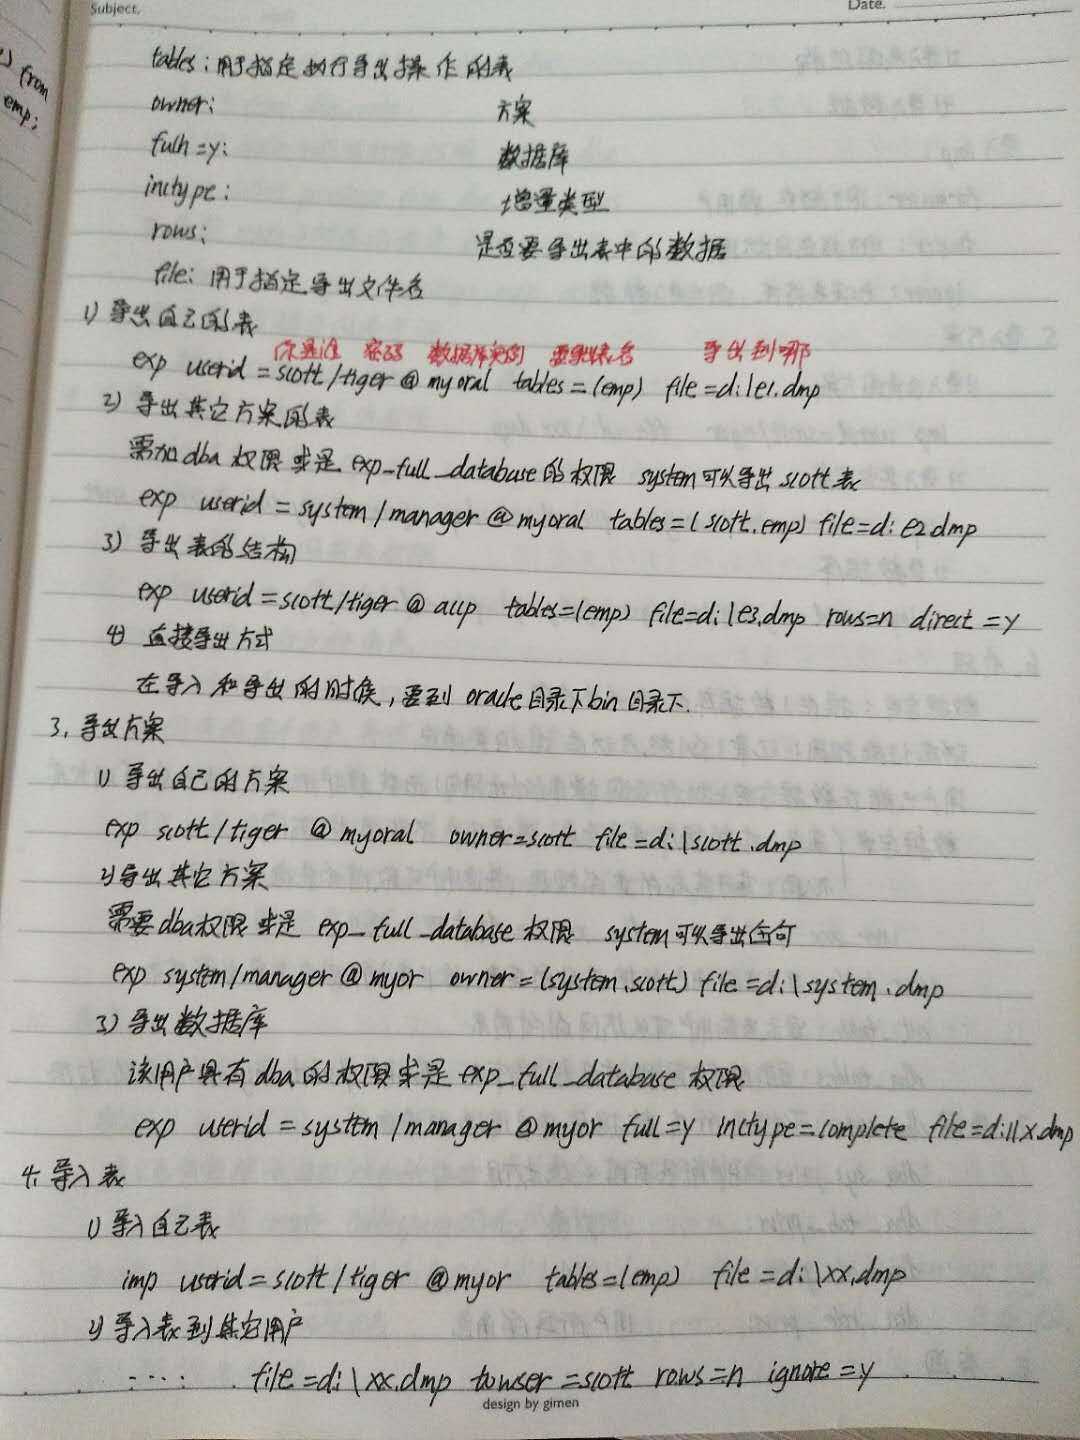 Subject.
Date.
) from
emp;
tables:用于指定执行导出操作的表
owner: 方案
fulh=y: 数据库
inctype: 增量类型
rows: 是否要导出表中的数据
file: 用于指定导出文件名
1) 导出自己的表
你是谁 密码 数据库实例 要导出表名 导出到哪
exp userid=scott/tiger@myoral tables=(emp) file=d:\e1.dmp
2) 导出其它方案的表
需加dba权限或是exp_full_database的权限 system可以导出scott表
exp userid=system/manager@myoral tables=(scott.emp) file=d:e2dmp
3) 导出表的结构
exp userid=scott/tiger@accp tables=(emp) file=d:\e3.dmp rows=n direct=y
4) 直接导出方式
在导入和导出的时候,要到oracle目录下bin目录下.
3. 导出方案
1) 导出自己的方案
exp scott/tiger @myoral owner=scott file=d:\scott.dmp
2) 导出其它方案
需要dba权限或是 exp_full_database权限 system可以导出
exp system/manager@myor owner=(system,scott) file=d:\system.dmp
3) 导出数据库
该用户具有dba的权限或是exp_full_database权限
exp userid=system/manager @myor full=y inctype=complete file=d:\\x.dmp
4. 导入表
1) 导入自己表
imp userid=scott/tiger @myor tables=(emp) file=d:\xx.dmp
2) 导入表到其它用户
.... file=d:\xx.dmp touser=scott rows=n ignore=y
design by gimen